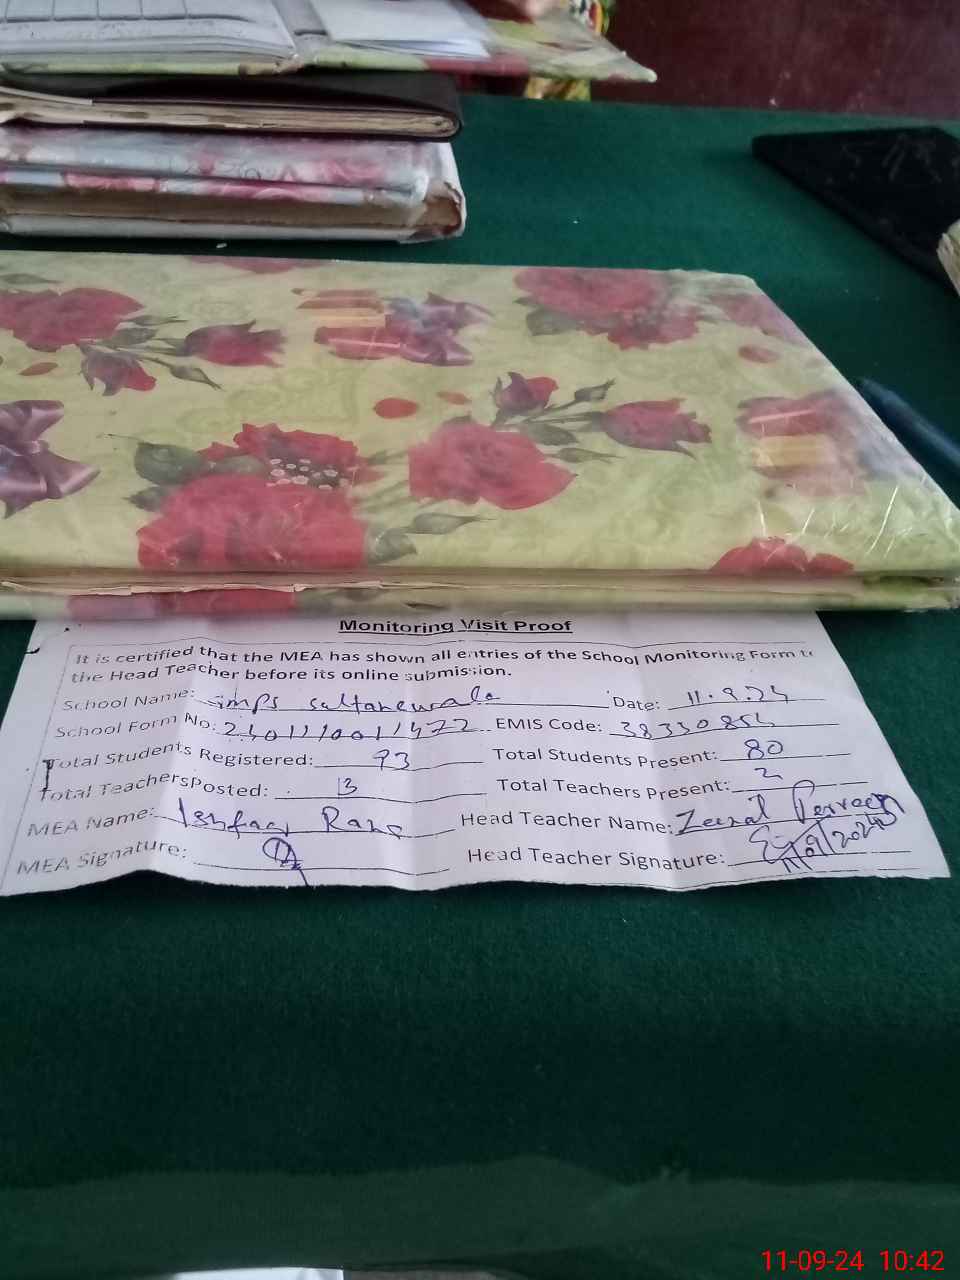 Monitoring Visit Proof
It is certified that the MEA has shown all entries of the School Monitoring Form to
the Head Teacher before its online submission.
School Name: Gmps sultanewala Date: 11.9.24
School Form No: EMIS Code: 38330854
Total Students Registered: 93 Total Students Present: 80
Total Teachers Posted: Total Teachers Present: 2
MEA Name: Ishfaq Head Teacher Name: Zeenat Perveen
MEA Signature: Head Teacher Signature: 11/09/2024
11-09-24 10:42